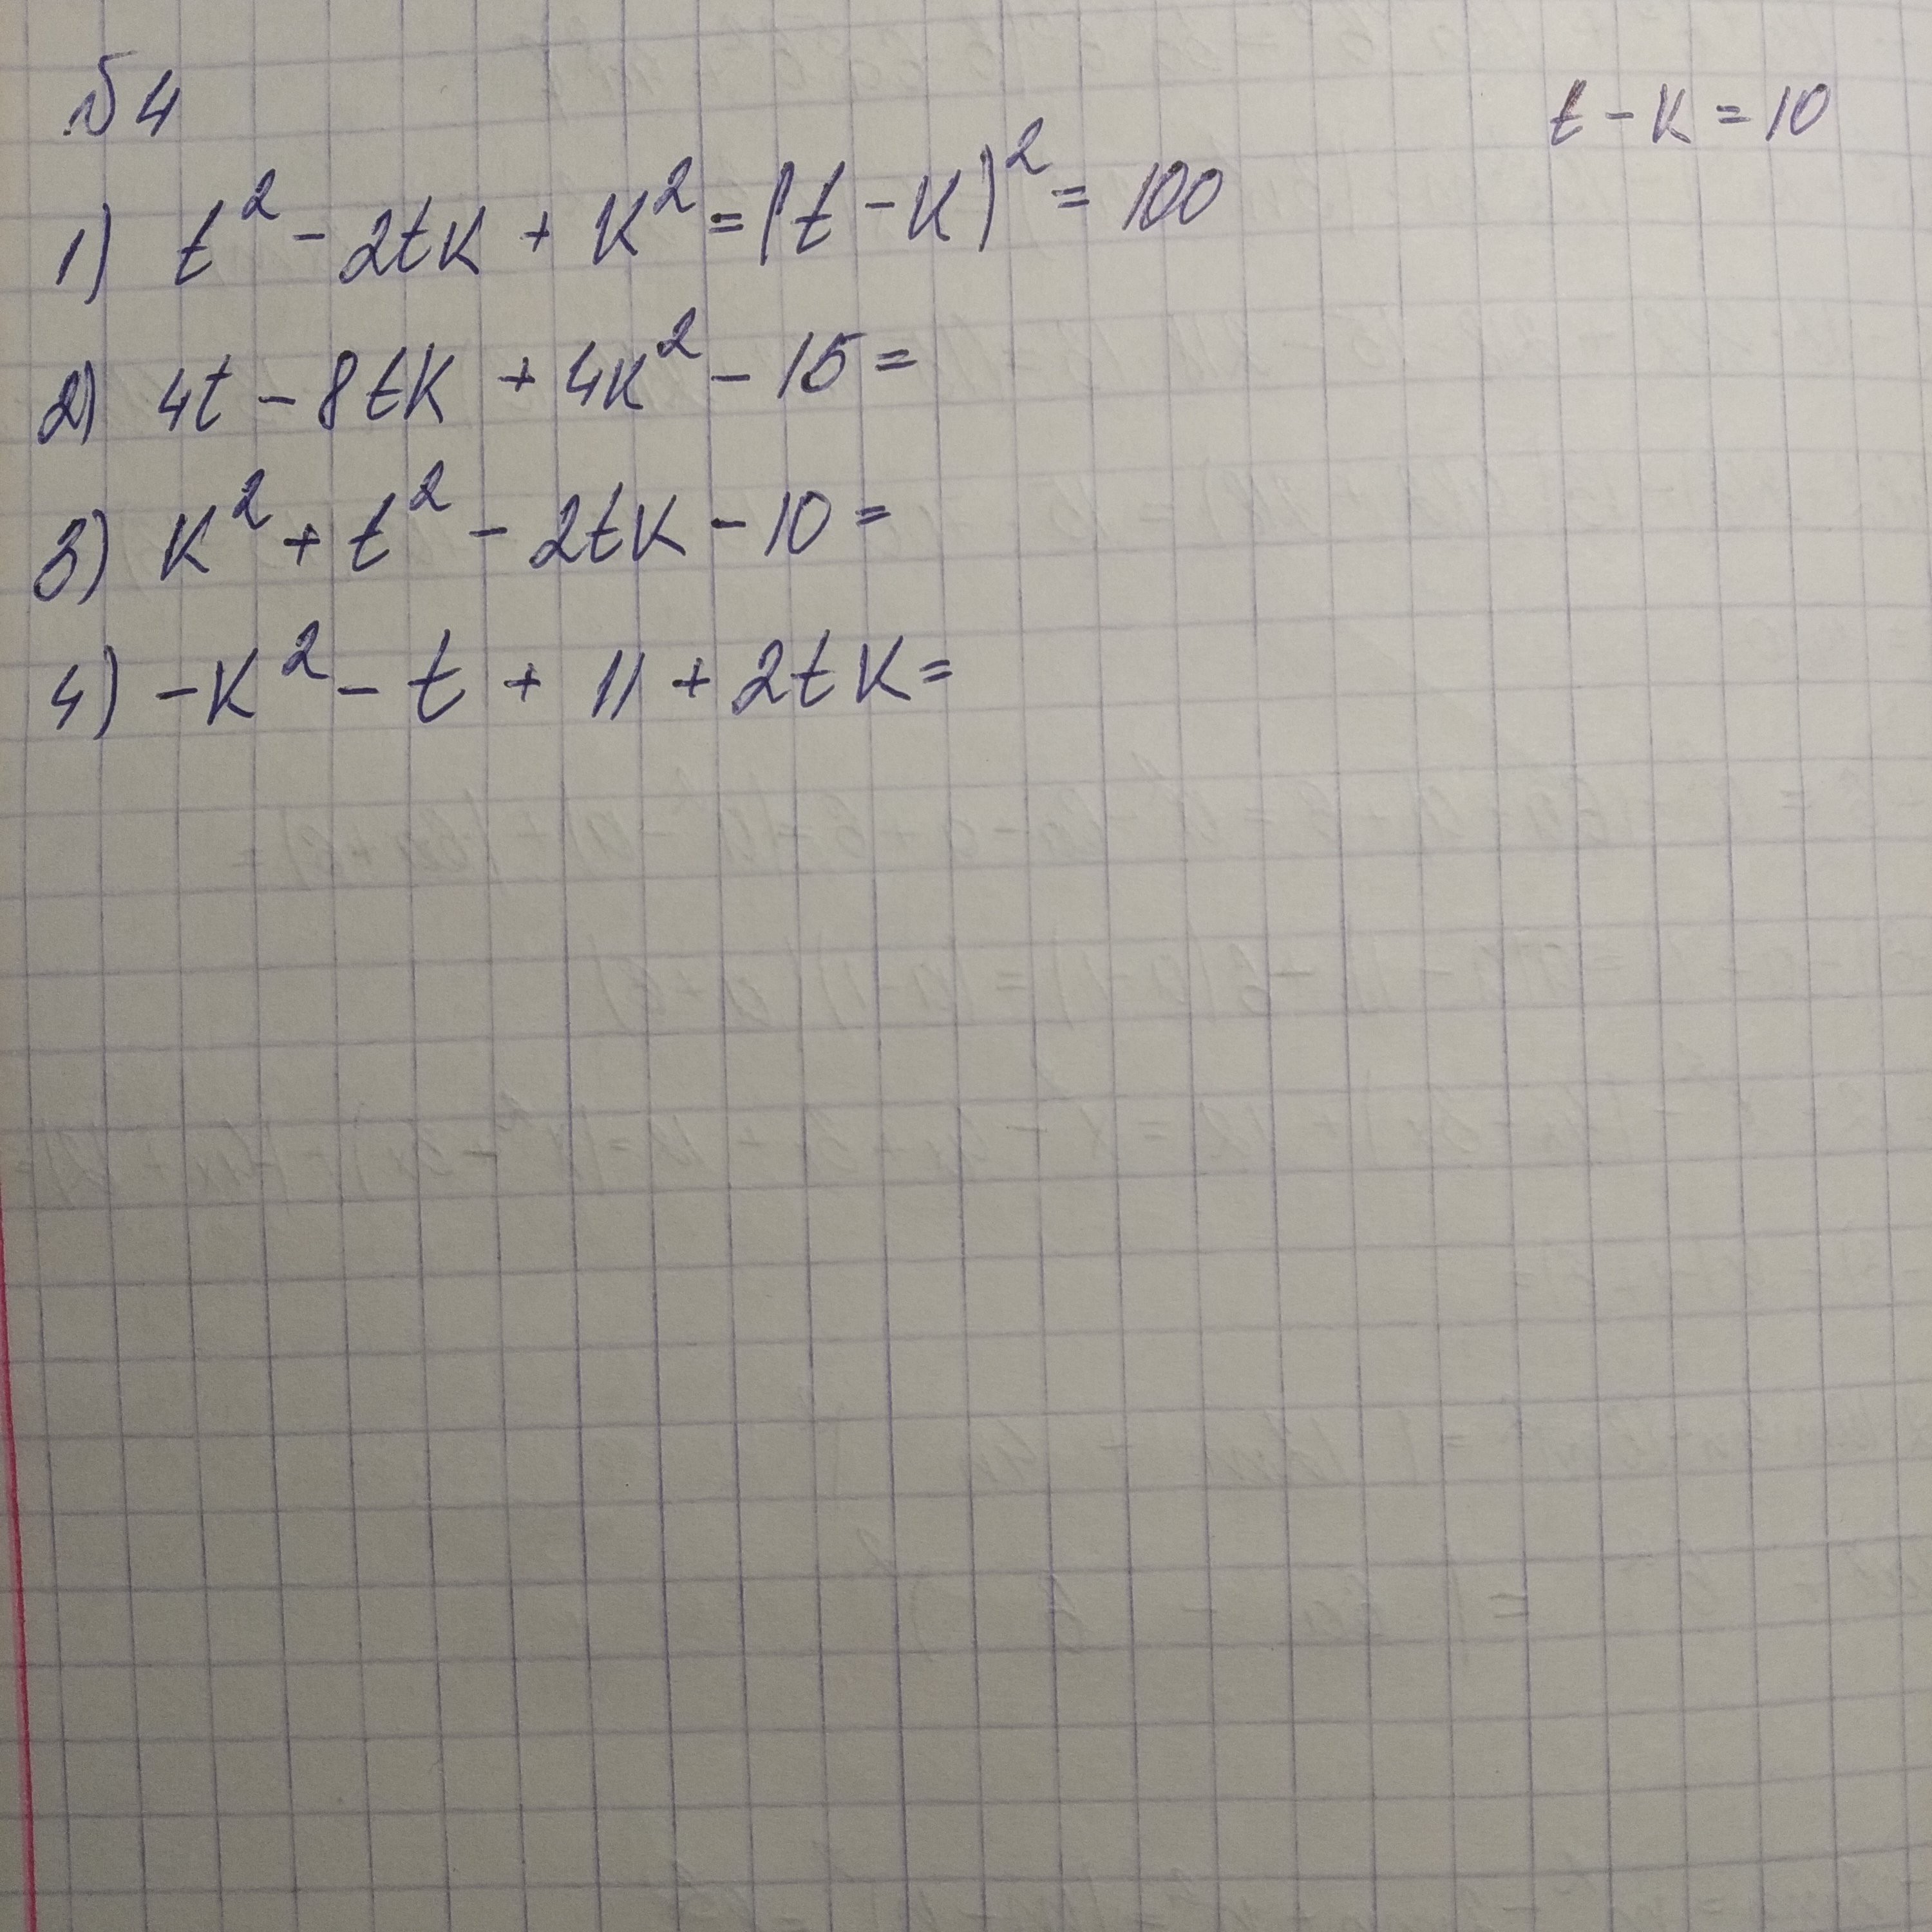 №4
t - k = 10
1) t² - 2tk + k² = (t - k)² = 100
2) 4t - 8tk + 4k² - 15 =
3) k² + t² - 2tk - 10 =
4) -k² - t + 11 + 2tk =